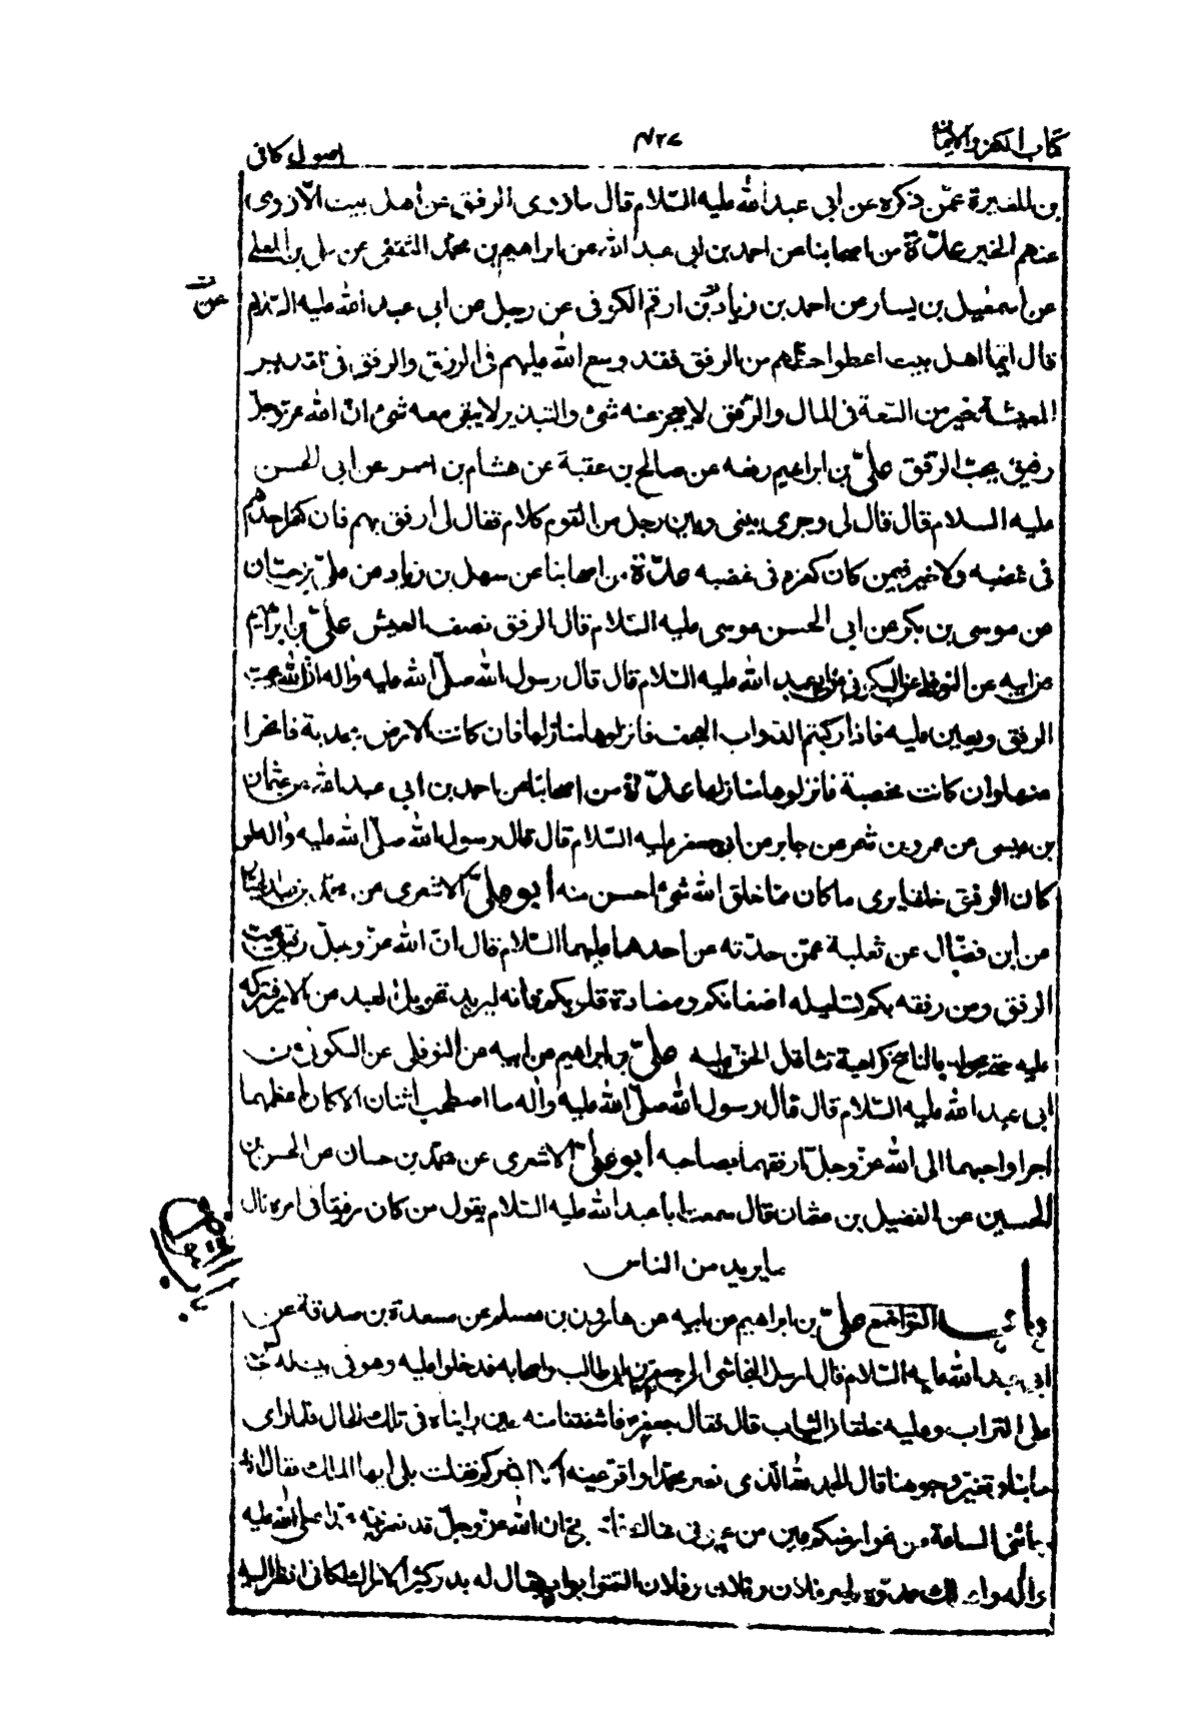 كتاب الكفر والايمان
٤٢٧
اصول كافى
بن المغيرة عمّن ذكره عن ابى عبد الله عليه السّلام قال ما زوى الرفق عن اهل بيت الّا زوى
عنهم الخير عدّة من اصحابنا عن احمد بن ابى عبد الله عن ابراهيم بن محمّد الثقفى عن على بن المعلى
عن اسمعيل بن يسار عن احمد بن زياد بن ارقم الكوفى عن رجل عن ابى عبد الله عليه السّلام
عن
قال ايّما اهل بيت اعطوا حظّهم من الرفق فقد وسع الله عليهم فى الرزق والرفق فى تقدير
المعيشة خير من السّعة فى المال والرّفق لا يعجز عنه شئ والتبذير لا يبقى معه شئ انّ الله عز وجلّ
رفيق يحبّ الرفق علىّ بن ابراهيم رفعه عن صالح بن عقبة عن هشام بن احمر عن ابى الحسن
عليه السلام قال قال لى وجرى بينى وبين رجل من القوم كلام فقال لى ارفق بهم فان كفر احدهم
فى غضبه ولا خير فيمن كان كفره فى غضبه عدّة من اصحابنا عن سهل بن زياد عن علىّ بن حسّان
عن موسى بن بكر عن ابى الحسن موسى عليه السّلام قال الرفق نصف العيش علىّ بن ابراهيم
عن ابيه عن النوفلى عن السكونى عن ابى عبد الله عليه السّلام قال قال رسول الله صلّى الله عليه واله انّ الله يحبّ
الرفق ويعين عليه فاذا ركبتم الدّواب العجف فانزلوها منازلها فان كانت الارض مجدبة فانجوا
عنها وان كانت مخصبة فانزلوها منازلها عدّة من اصحابنا عن احمد بن ابى عبد الله عن عثمان
بن عيسى عن عمرو بن شمر عن جابر عن ابى جعفر عليه السّلام قال قال رسول الله صلّى الله عليه واله لو
كان الرفق خلقا يرى ما كان ممّا خلق الله شئ احسن منه ابو علىّ الاشعرى عن محمّد بن عبد الجبّار
عن ابن فضّال عن ثعلبة عمّن حدّثه عن احدهما عليهما السّلام قال انّ الله عزّ وجلّ رفيق يحبّ
الرفق ومن رفقه بكم تسليله اضغانكم ومضادة قلوبكم وانه ليريد تحويل العبد عن الامر فيتركه
عليه حتى يحوله بالناسخ كراهية تثاقل الحق عليه علىّ بن ابراهيم عن ابيه عن النوفلى عن السكونى عن
ابى عبد الله عليه السّلام قال قال رسول الله صلّى الله عليه واله ما اصطحب اثنان الا كان اعظمهما
اجرا واحبهما الى الله عزّ وجلّ ارفقهما بصاحبه ابو علىّ الاشعرى عن محمّد بن حسان عن الحسن بن
الحسين عن الفضيل بن عثمان قال سمعت ابا عبد الله عليه السّلام يقول من كان رفيقا فى امره نال
ما يريد من الناس
باب التواضع علىّ بن ابراهيم عن ابيه عن هارون بن مسلم عن مسعدة بن صدقة عن
ابى عبد الله عليه السّلام قال ارسل النجاشى الى جعفر بن ابى طالب واصحابه فدخلوا عليه وهو فى بيت له
على التراب وعليه خلقان الثياب قال فقال جعفر فاشفقنا منه حين رايناه فى تلك الحال فلما راى
ما بنا وتغيّر وجوهنا قال الحمد لله الّذى نصر محمّدا واقر عينه الا ابشركم فقلت بلى ايها الملك فقال انه
جاءنى الساعة من نحو ارضكم عين من عيونى هناك فاخبرنى ان الله عزّ وجلّ قد نصر نبيه محمّدا صلى الله عليه
واله واهلك عدوّه واسر فلان وفلان وفلان التقوا بواد يقال له بدر كثير الاراك لكانى انظر اليه